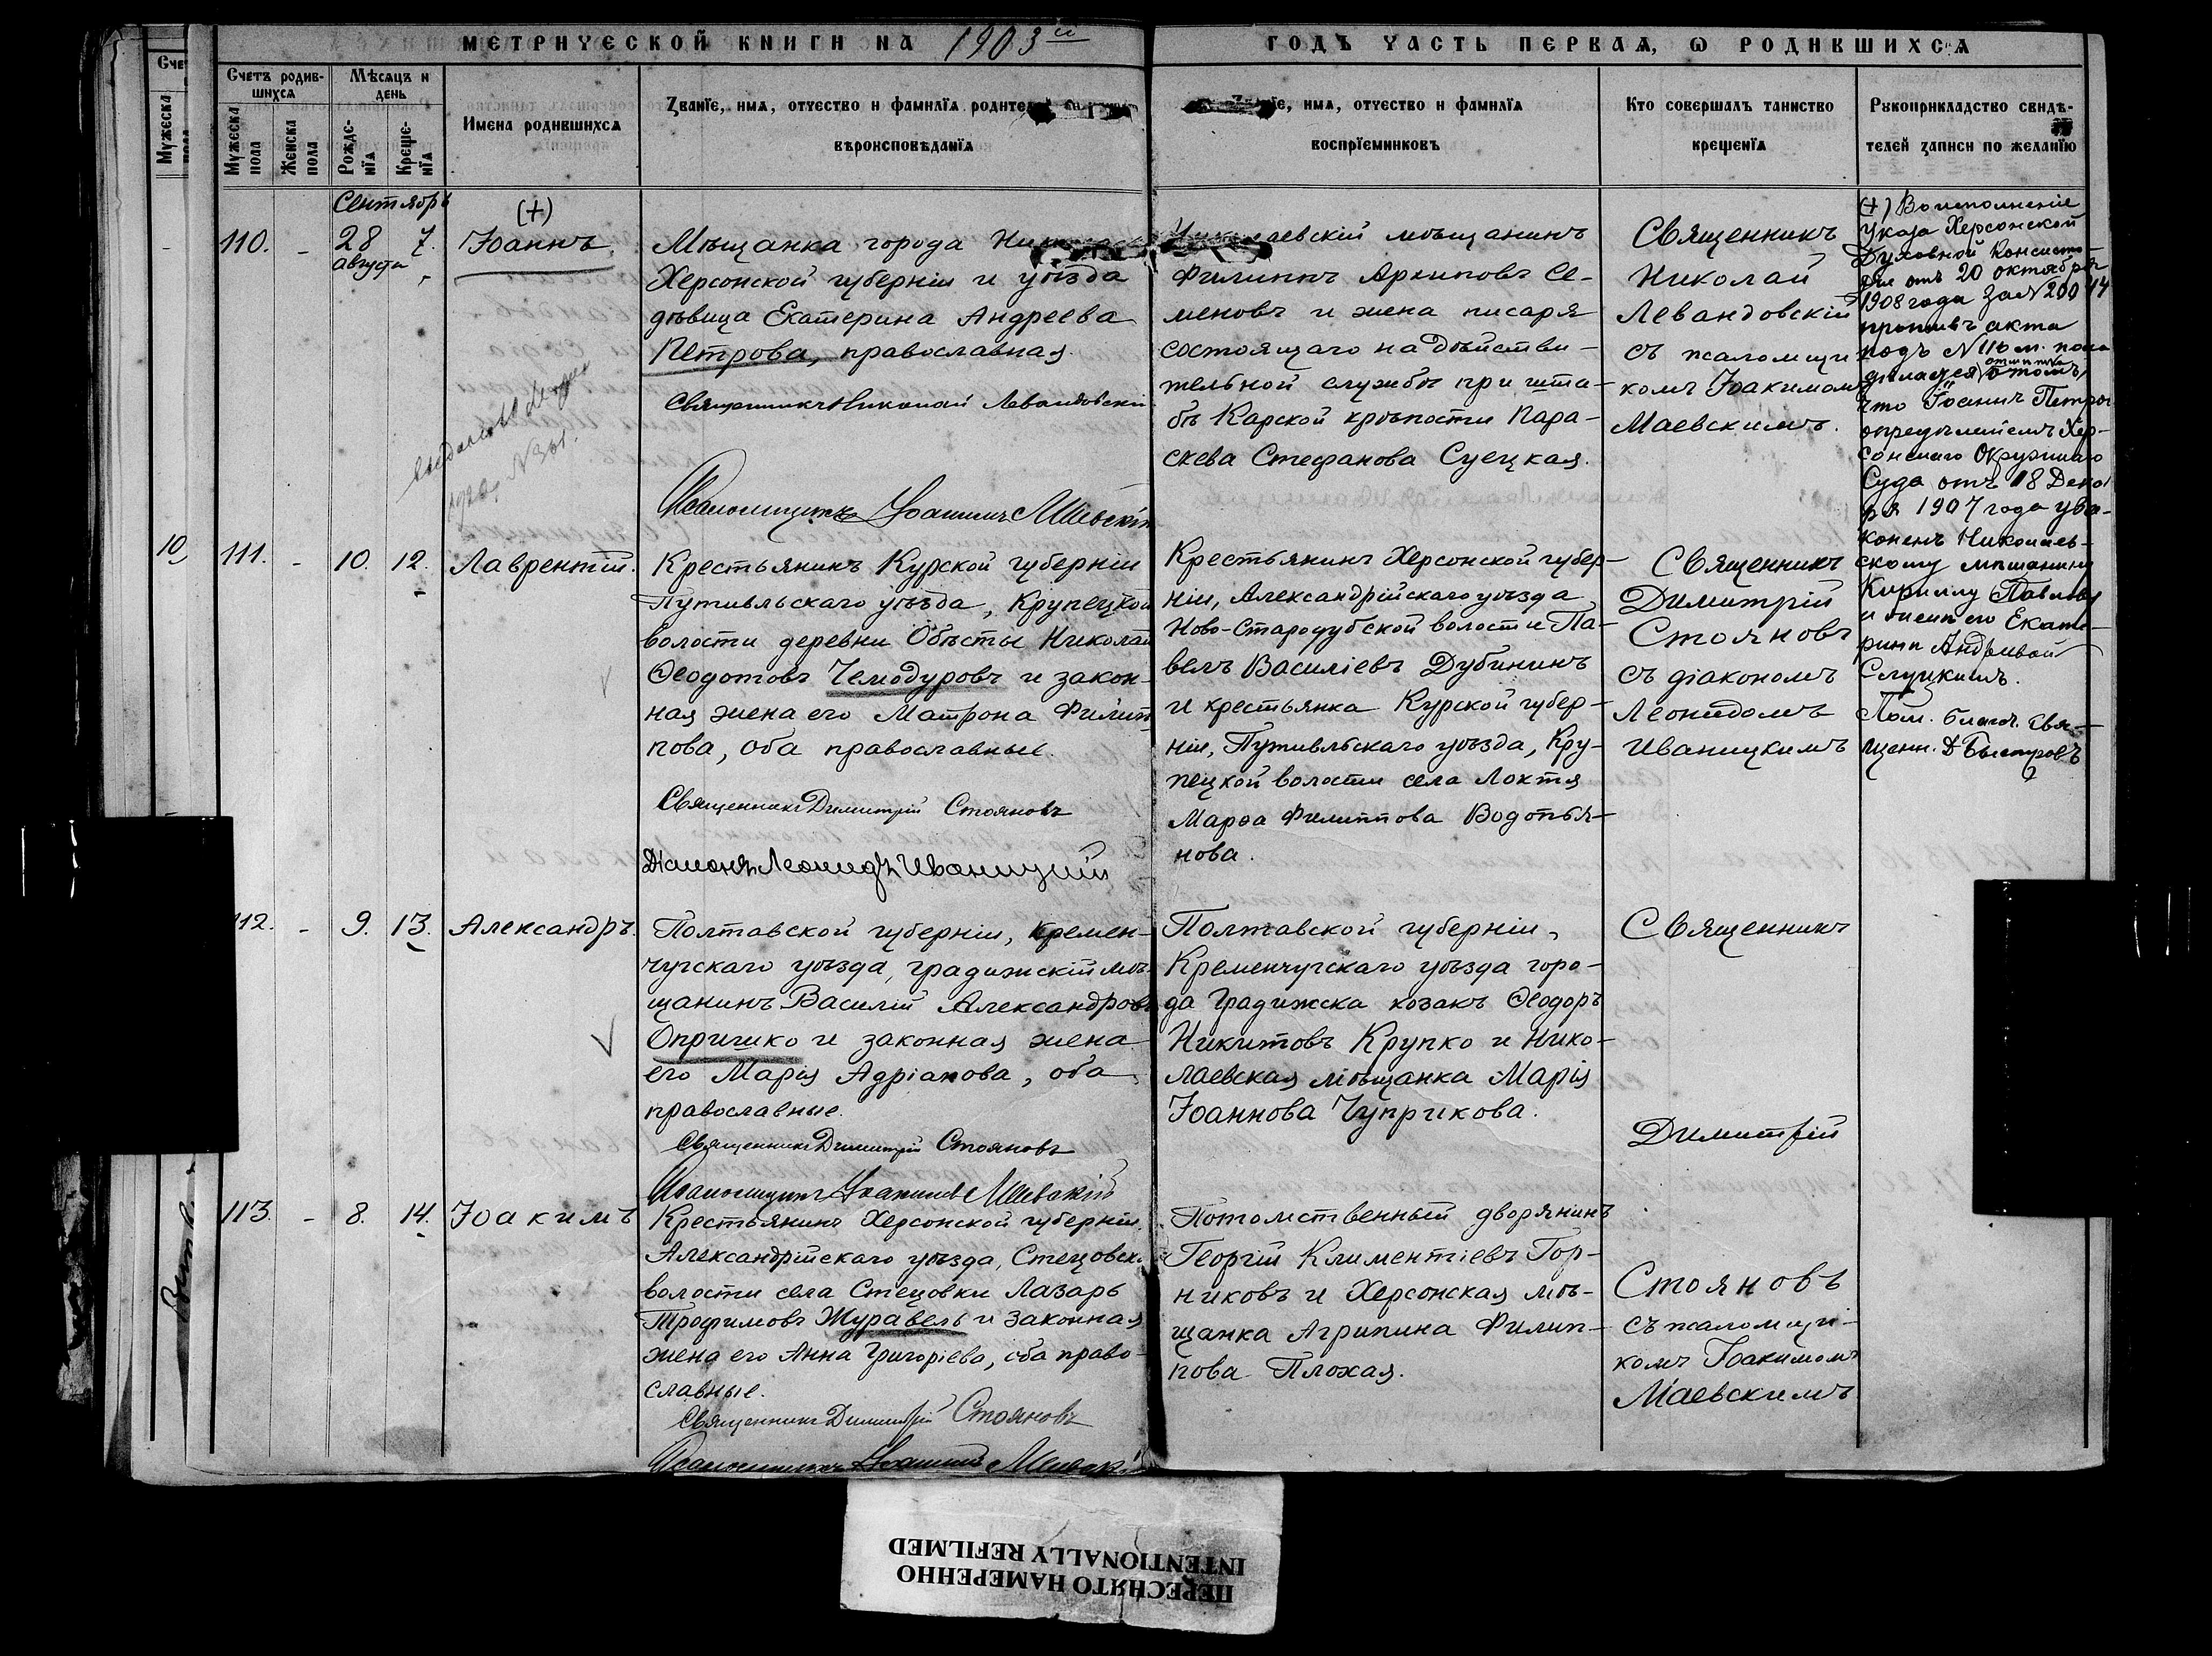 МЕТРИЧЕСКОЙ КНИГИ НА 1903й ГОДЪ ЧАСТЬ ПЕРВАЯ, О РОДИВШИХСЯ
Счетъ родив-
шихся
Мѣсяцъ и
день
Мужеска
пола
Женска
пола
Рожде-
нїя
Креще-
нїя
Имена родившихся
Званїе, имя, отчество и фамилїя родителей
вѣроисповѣданїя
имя, отчество и фамилїя
воспрїемниковъ
Кто совершалъ таинство
крещенїя
Рукоприкладство свидѣ-
телей записи по желанїю
Сентябрь
110. - 28 7.
августа
(+)
Іоаннъ
Мѣщанка города
Херсонской губерніи и уѣзда
дѣвица Екатерина Андреева
Петрова, православная.
Священникъ Николай Левандовскій
Псаломщикъ Іоакимъ Маевскій
Николаевскій мѣщанинъ
Филиппъ Архиповъ Се-
меновъ и жена писаря
состоящаго на дѣйстви-
тельной службѣ при шта-
бѣ Карской крѣпости Пара-
скева Стефанова Суецкая.
Священникъ
Николай
Левандовскій
съ псаломщи-
комъ Іоакимомъ
Маевскимъ.
(+) Во исполненіе
указа Херсонской
Духовной Консисто-
ріи отъ 20 октября
1908 года за №
противъ акта
подъ № 110 м. пола
дѣлается отмѣтка о томъ,
что Іоаннъ Петровъ
опредѣленіемъ Хер-
сонскаго Окружнаго
Суда отъ 18 Декаб
ря 1907 года уза-
коненъ Николаев-
скому мѣщанину
Кириллу Павлову
и женѣ его Екате-
ринѣ Андреевой
Слуцкимъ.
Пом. благоч. свя-
щенн. Д Быстровъ
10
111. - 10. 12. Лаврентій.
Крестьянинъ Курской губерніи
Путивльскаго уѣзда, Крупецкой
волости деревни Обѣсты Николай
Ѳеодотовъ Чемодуровъ и закон-
ная жена его Матрона Филип-
пова, оба православные.
Священникъ Димитрій Стояновъ
Діаконъ Леонидъ Иваницкій
Крестьянинъ Херсонской губер-
ніи, Александрійскаго уѣзда
Ново-Стародубской волости Па-
велъ Василіевъ Дубининъ
и крестьянка Курской губер-
ніи, Путивльскаго уѣзда, Кру-
пецкой волости села Локтя
Марѳа Филиппова Водопья-
нова.
Священникъ
Димитрій
Стояновъ
съ діакономъ
Леонидомъ
Иваницкимъ
112. - 9. 13. Александръ.
Полтавской губерніи, Кремен-
чугскаго уѣзда, градижскій мѣ-
щанинъ Василій Александровъ
Опришко и законная жена
его Марія Адріанова, оба
православные.
Священникъ Димитрій Стояновъ
Псаломщикъ Іоакимъ Маевскій
Полтавской губерніи,
Кременчугскаго уѣзда горо-
да Градижска козакъ Ѳеодоръ
Никитовъ Крупко и Нико-
лаевская мѣщанка Марія
Іоаннова Чуприкова.
Священникъ
Димитрій
113. - 8. 14. Іоакимъ
Крестьянинъ Херсонской губерніи
Александрійскаго уѣзда, Стецовск.
волости села Стецовки Лазарь
Трофимовъ Журавель и законная
жена его Анна Григоріева, оба право-
славные.
Священникъ Димитрій Стояновъ
Псаломщикъ Іоакимъ Маевскій
Потомственный дворянинъ
Георгій Климентіевъ Гор-
никовъ и Херсонская мѣ-
щанка Агрипина Филип-
пова Плохая.
Стояновъ
съ псаломщи-
комъ Іоакимомъ
Маевскимъ
ПЕРЕСНЯТО НАМЕРЕННО
INTENTIONALLY REFILMED